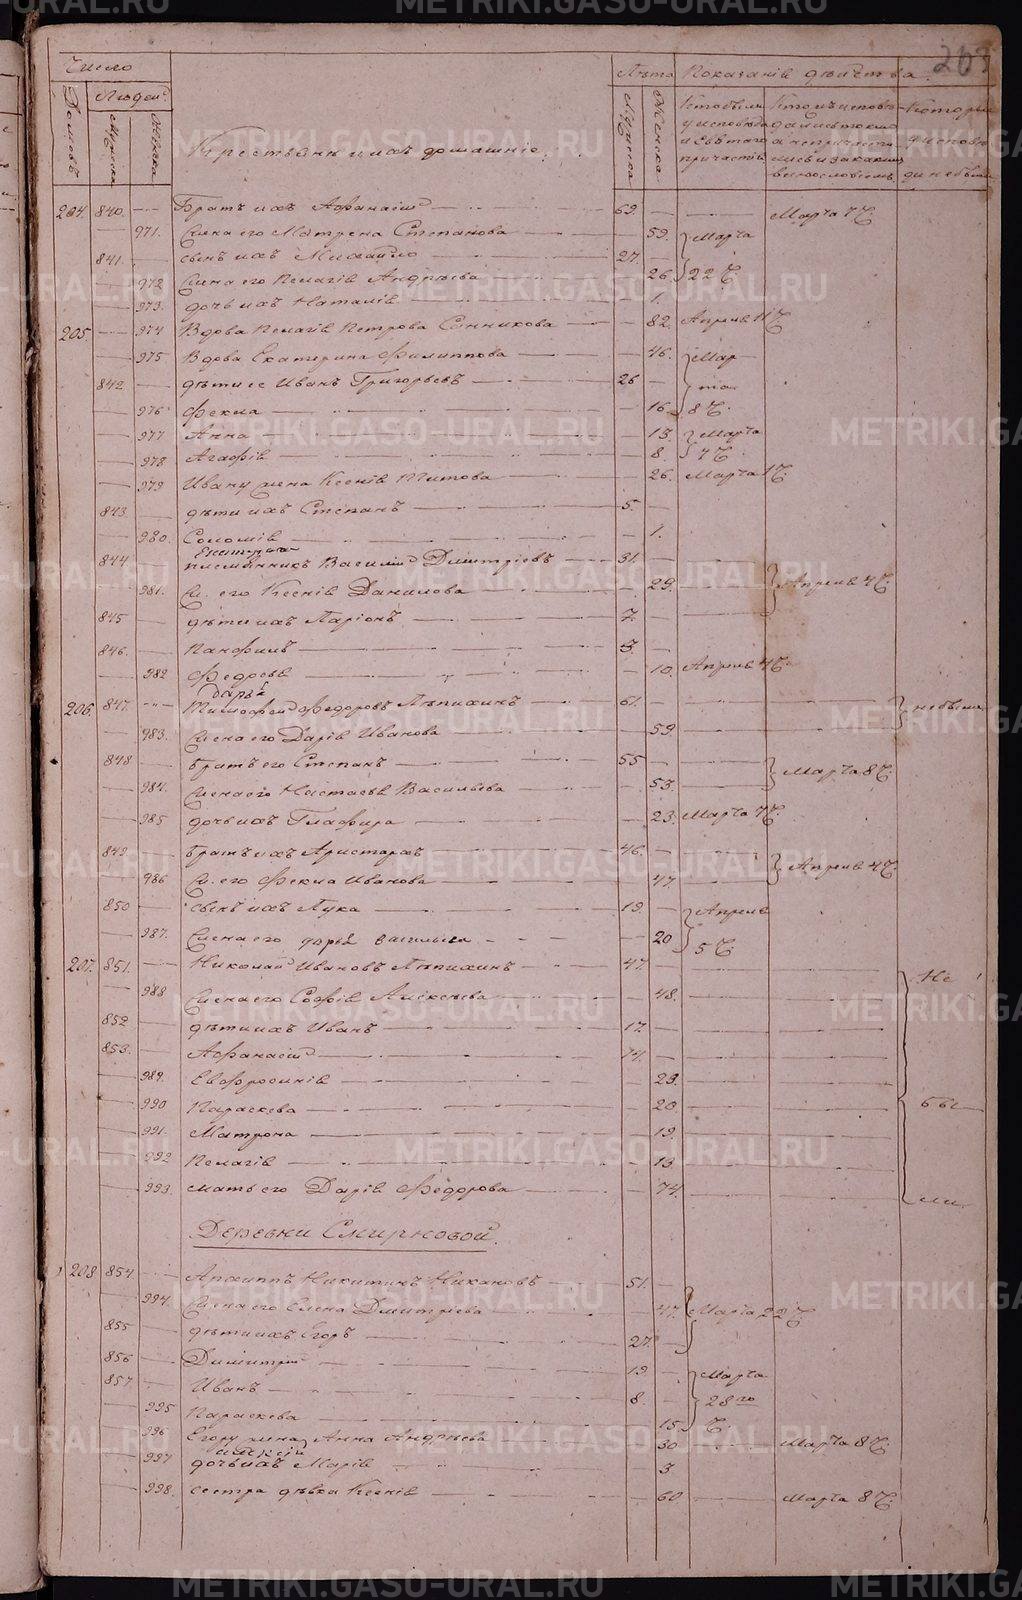 203
Число
Лѣта Показаніе дѣйства.
Людей
Домовъ
Мужска
Женска
Крестьяне и ихъ домашніе.
Мужска
Женска
Кто были у исповѣди и святаго причастія
Кто исповѣдались токмо а не причастились и за какимъ винословіемъ.
Которые у исповѣди не были
204. 840. Братъ ихъ Афанасій 69. Марта 7 Ч.
971. Жена его Матрена Степанова 59. Марта
841. сынъ ихъ Михайло 27.
972 Жена его Пелагія Андрѣева 26. 22 Ч.
973. дочь ихъ Наталія 1.
205. 974 Вдова Пелагія Петрова Санникова 82. Апрѣля 11 Ч.
975 Вдова Екатерина Филиппова 46. Мар
842 дѣти ее Иванъ Григорьевъ 26 та
976 Фекла 16. 8 Ч.
977 Анна 13. Марта
978 Агафія 8. 7 Ч.
979 Ивану жена Ксенія Титова 26. Марта 1 Ч.
843. дѣти ихъ Степанъ 5.
980. Соломія 1.
844 племянникъ Василій Димитріевъ 31.
981. Ж. его Ксенія Данилова 29. Апрѣля 4 Ч.
845 дѣти ихъ Ларіонъ 7.
846. Панфилъ 3.
982 Федосья 10. Апрѣля 4 Ч.
Дарья
206. 847. Тимофей Федоровъ Лѣпихинъ 61. не были
983. Жена его Дарія Иванова 59
848 братъ его Степанъ 55
984. Жена его Настасья Васильева 53. Марта 8 Ч.
985 дочь ихъ Глафира 23. Марта 7 Ч.
849. братъ ихъ Аристархъ 46.
986 Ж. его Фекла Иванова 47. Апрѣля 4 Ч.
850 сынъ ихъ Лука 19. Апрѣля
987. Жена его дарья васильева 20 5 Ч.
207. 851. Николай Ивановъ Лѣпихинъ 47. Не
988 Жена его Софія Алексѣева 48.
852 дѣти ихъ Иванъ 17.
853. Афанасій 14.
989. Евфросинія 23.
990 Параскева 20. бы
991. Матрона 19.
992 Пелагія 13
993. мать его Дарія Федорова 74. ли.
Деревни Смирновой.
1 208 854 Архиппъ Никитинъ Никоновъ 51.
994. Жена его Елена Дмитріева 47. Марта 22 Ч.
855 дѣти ихъ Егоръ 27.
856 Димитрій 19. Марта
857 Иванъ 8. 28го
995 Параскева 15 Ч.
996. Егору жена Анна Андрѣева 30 Марта 8 Ч.
997 дочь ихъ Марія 3
998. сестра дѣвка Ксенія 60 Марта 8 Ч.
METRIKI.GASO-URAL.RU